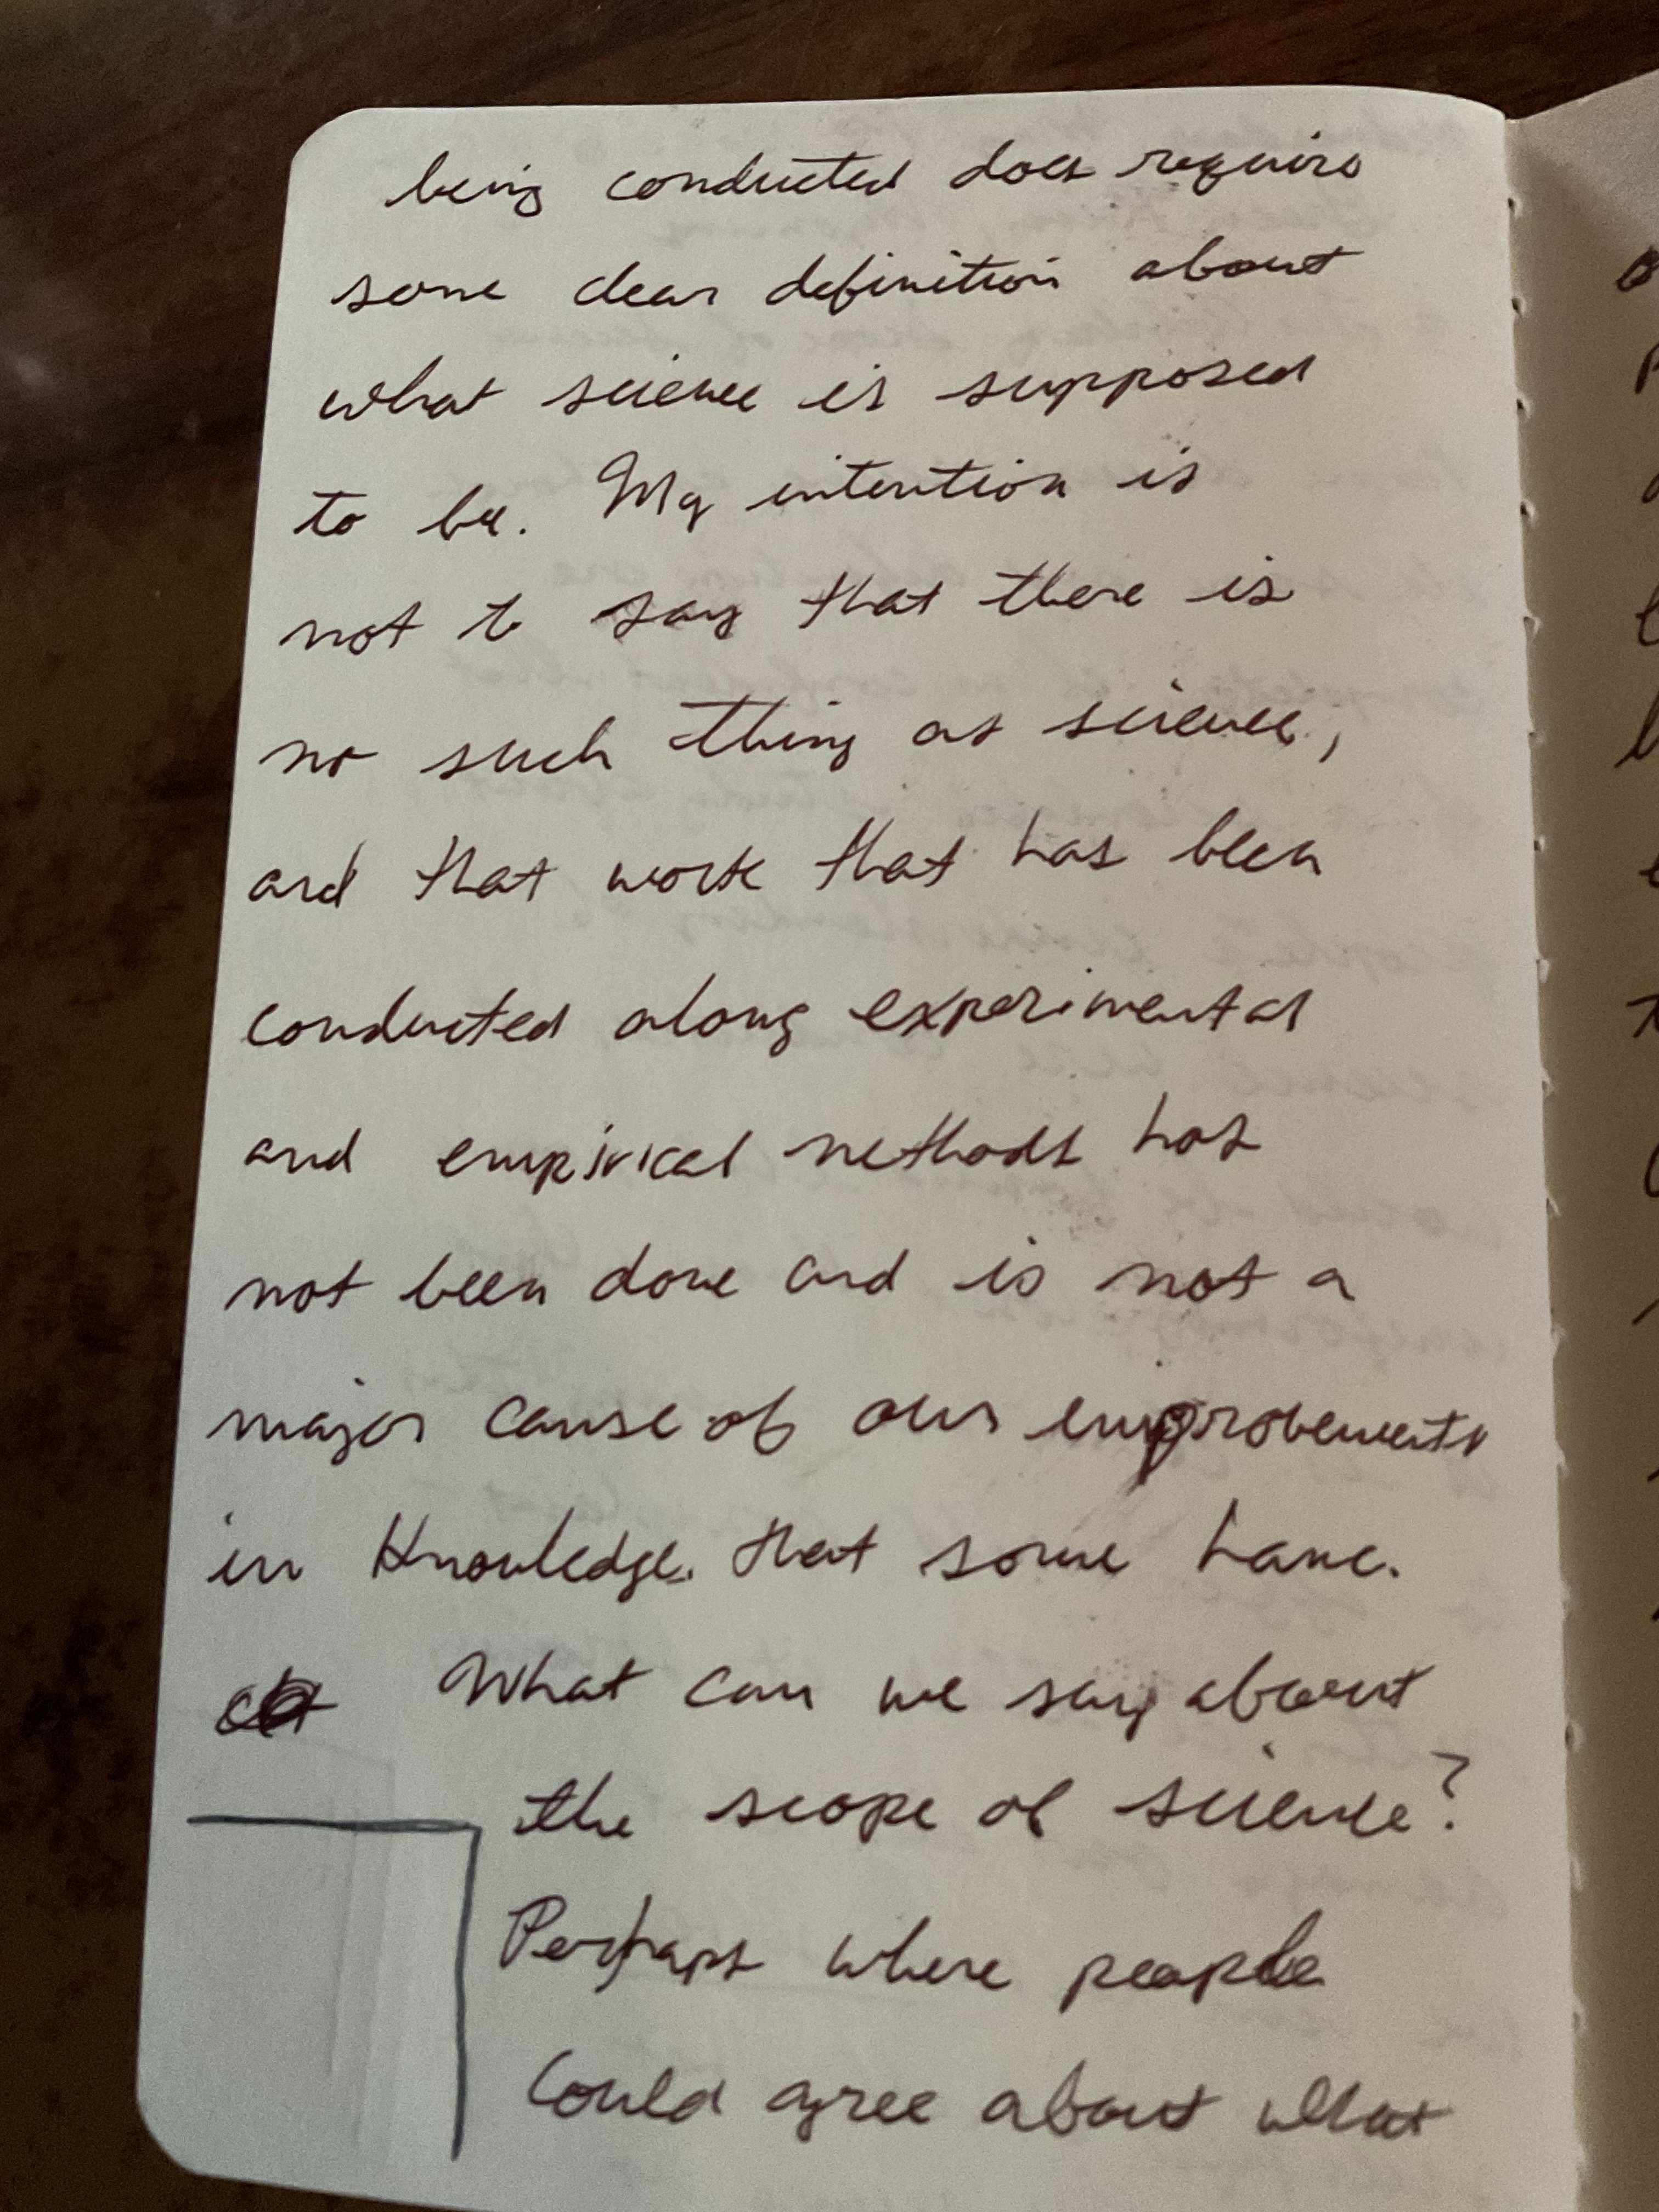 being conducted does require
some clear definition about
what science is supposed
to be. My intention is
not to say that there is
no such thing as science,
and that work that has been
conducted along experimental
and empirical methods has
not been done and is not a
major cause of our improvements
in knowledge. that some have.
What can we say about
the scope of science?
Perhaps where people
could agree about what